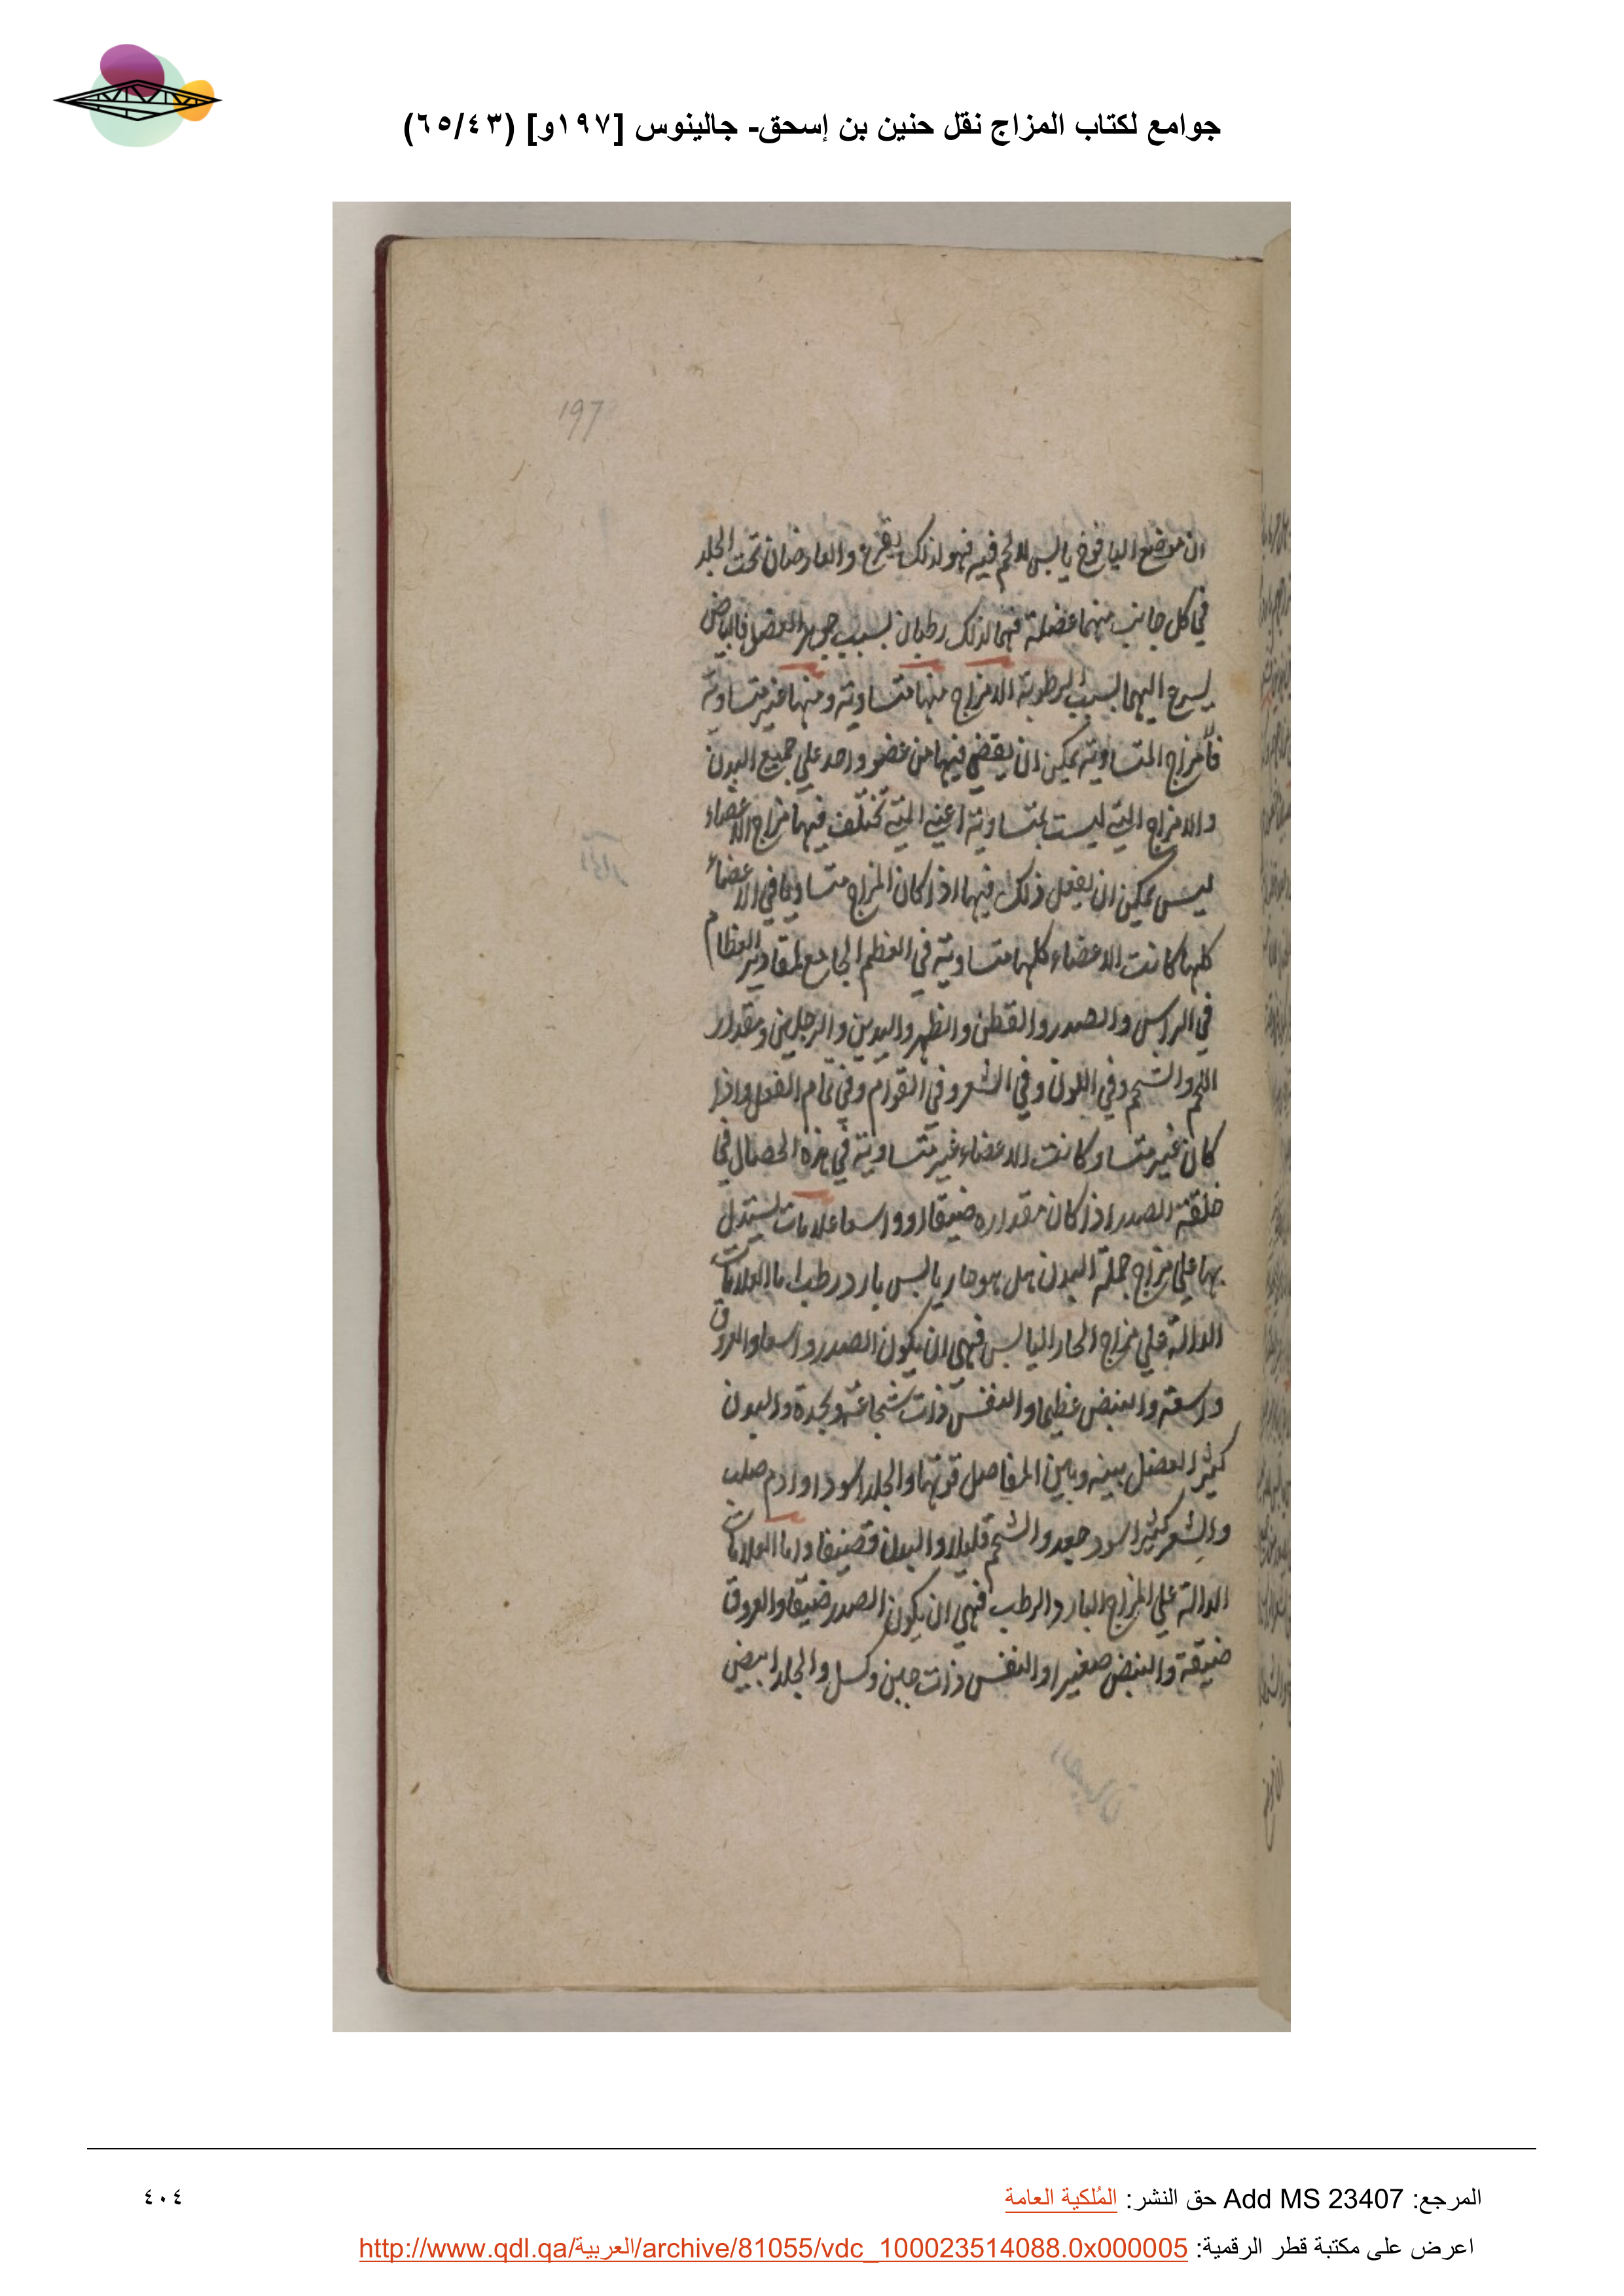 جوامع لكتاب المزاج نقل حنين بن إسحق- جالينوس [١٩٧و] (٦٥/٤٣)
197
ان موضع اليافوخ يابس لا لحم فيه فهو لذلك يقرع والعارضان تحت الجلد
في كل جانب منهما عضلة فهما لذلك رطبان بسبب جوهر العضل فالبياض
يسرع اليهما بسبب الرطوبة الامزاج منها متساوية ومنها غير متساوية
فالمزاج المتساوية يمكن ان يقضي فيها من عضو واحد علي جميع البدن
والامزاج التي ليست بمتساوية اعني التي تختلف فيها مزاج الاعضاء
ليس يمكن ان يفعل ذلك فيها اذا كان المزاج متساويا في الاعضاء
كلها كانت الاعضاء كلها متساوية في العظم الجامع لمقادير العظام
في الراس والصدر والقطن والظهر واليدين والرجلين ومقدار
اللحم والشحم وفي اللون وفي الشعر وفي القوام وفي تمام الفعل واذا
كان غير متساو كانت الاعضاء غير متساوية في هذه الخصال في
خلقة الصدر اذا كان مقداره ضيقا او واسعا علامات يستدل
بها علي مزاج جملة البدن هل هو حار يابس بارد رطب اما العلامات
الدالة علي مزاج الحار اليابس فهي ان يكون الصدر واسعا والعروق
واسعة والنبض عظيما والنفس ذات شجاعة ونجدة والبدن
كثير العضل بينه وبين المفاصل قوتها والجلد اسود او ادم صلب
والشعر كثير اسود جعد والشحم قليلا والبدن قضيفا واما العلامات
الدالة علي المزاج البارد الرطب فهي ان يكون الصدر ضيقا والعروق
ضيقة والنبض صغيرا والنفس ذات جبن وكسل والجلد ابيض
المرجع: Add MS 23407 حق النشر: المُلكية العامة
٤٠٤
اعرض على مكتبة قطر الرقمية: http://www.qdl.qa/العربية/archive/81055/vdc_100023514088.0x000005